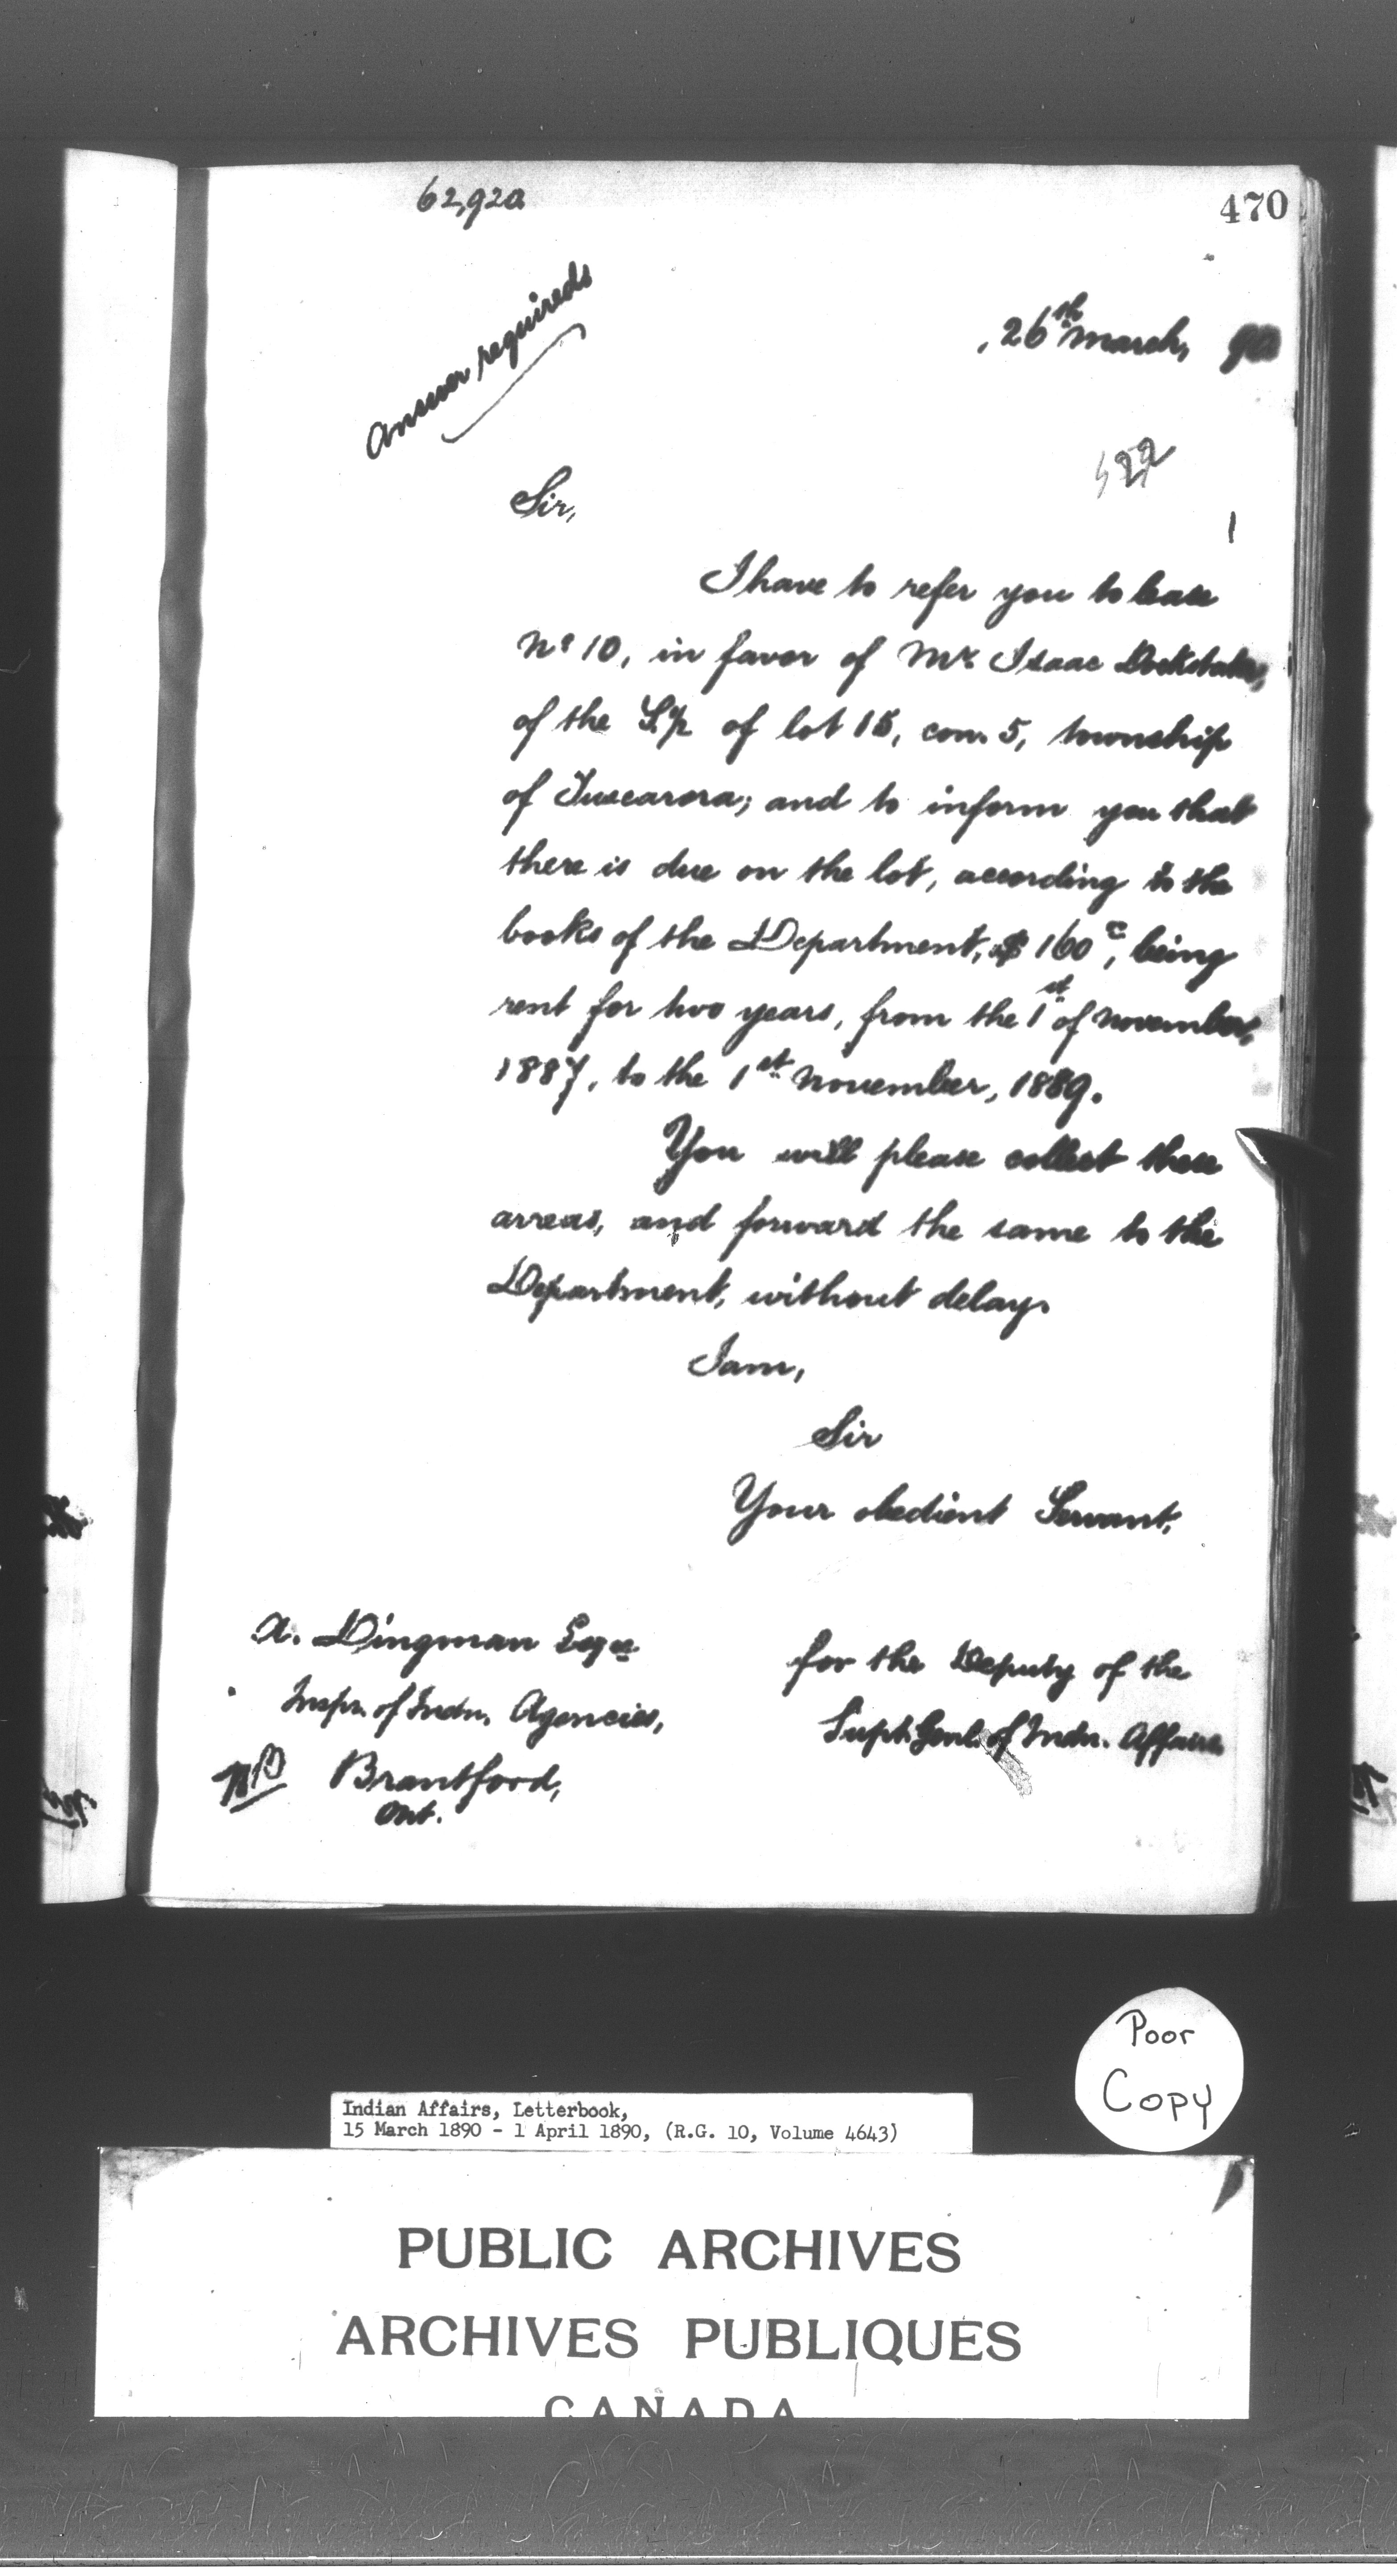 62,920
470
Answer required
26th March, 90
Sir,
I have to refer you to lease
No 10, in favor of Mr. Isaac Dockstader,
of the S.½ of lot 15, con. 5, township
of Tuscarora; and to inform you that
there is due on the lot, according to the
books of the Department, $160 c, being
rent for two years, from the 1st of November,
1887, to the 1st November, 1889.
You will please collect these
arreas, and forward the same to the
Department, without delay.
I am,
Sir
Your obedient Servant,
A. Dingman Esqre
Inspr. of Indn. Agencies,
Brantford,
Ont.
for the Deputy of the
Supt. Genl. of Indn. Affairs
Poor
Copy
Indian Affairs, Letterbook,
15 March 1890 - 1 April 1890, (R.G. 10, Volume 4643)
PUBLIC ARCHIVES
ARCHIVES PUBLIQUES
CANADA